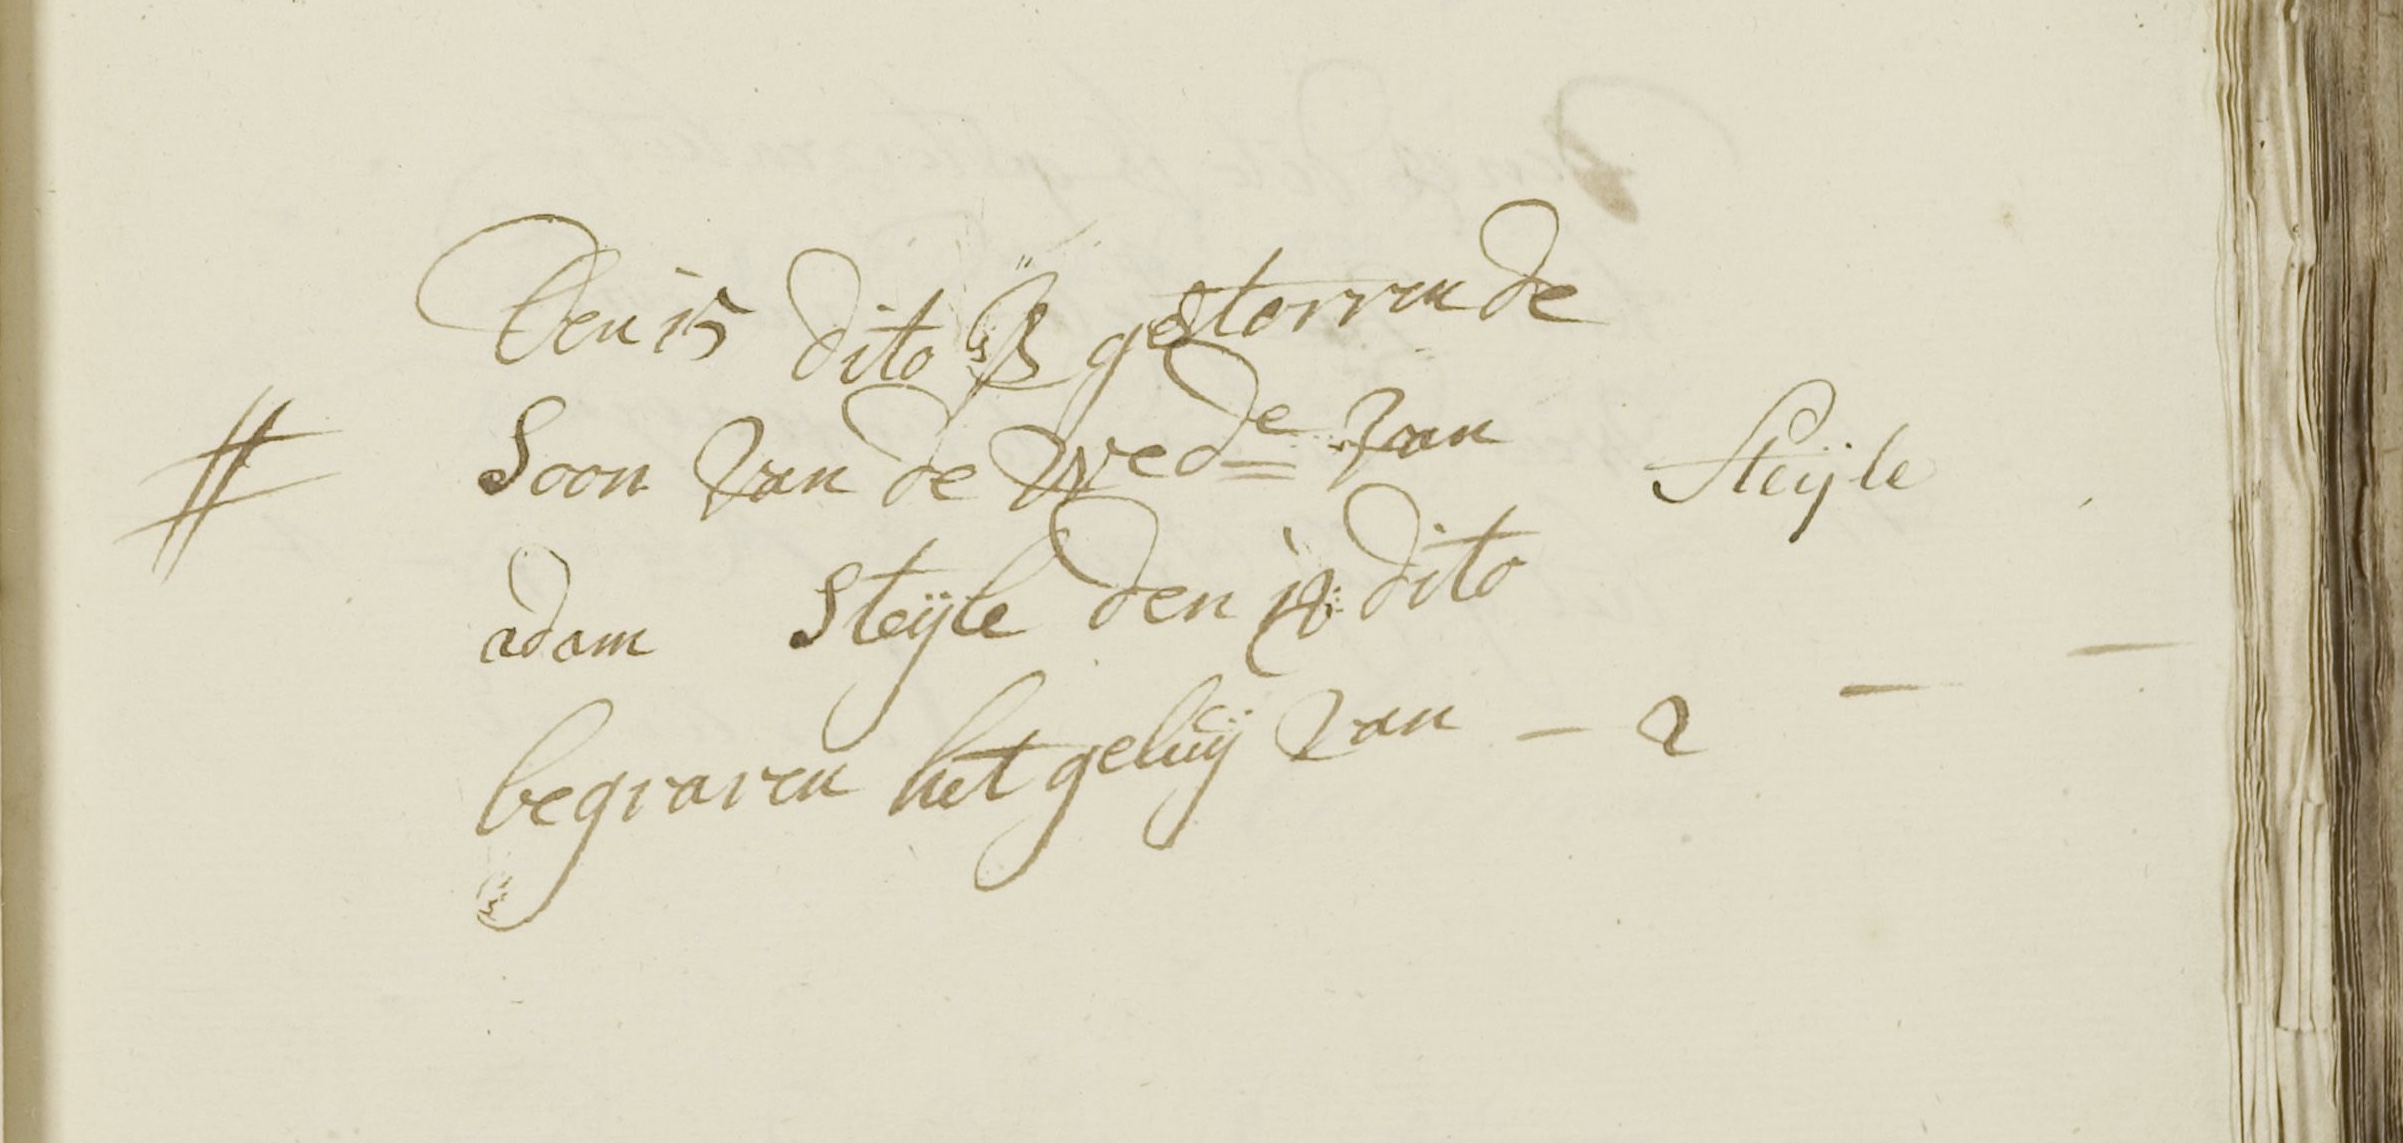 Den 15 dito Is gestorven de
Soon van de Wede van Steijle
adam Steijle den 18 dito
begraven het geluij van – 2 – –